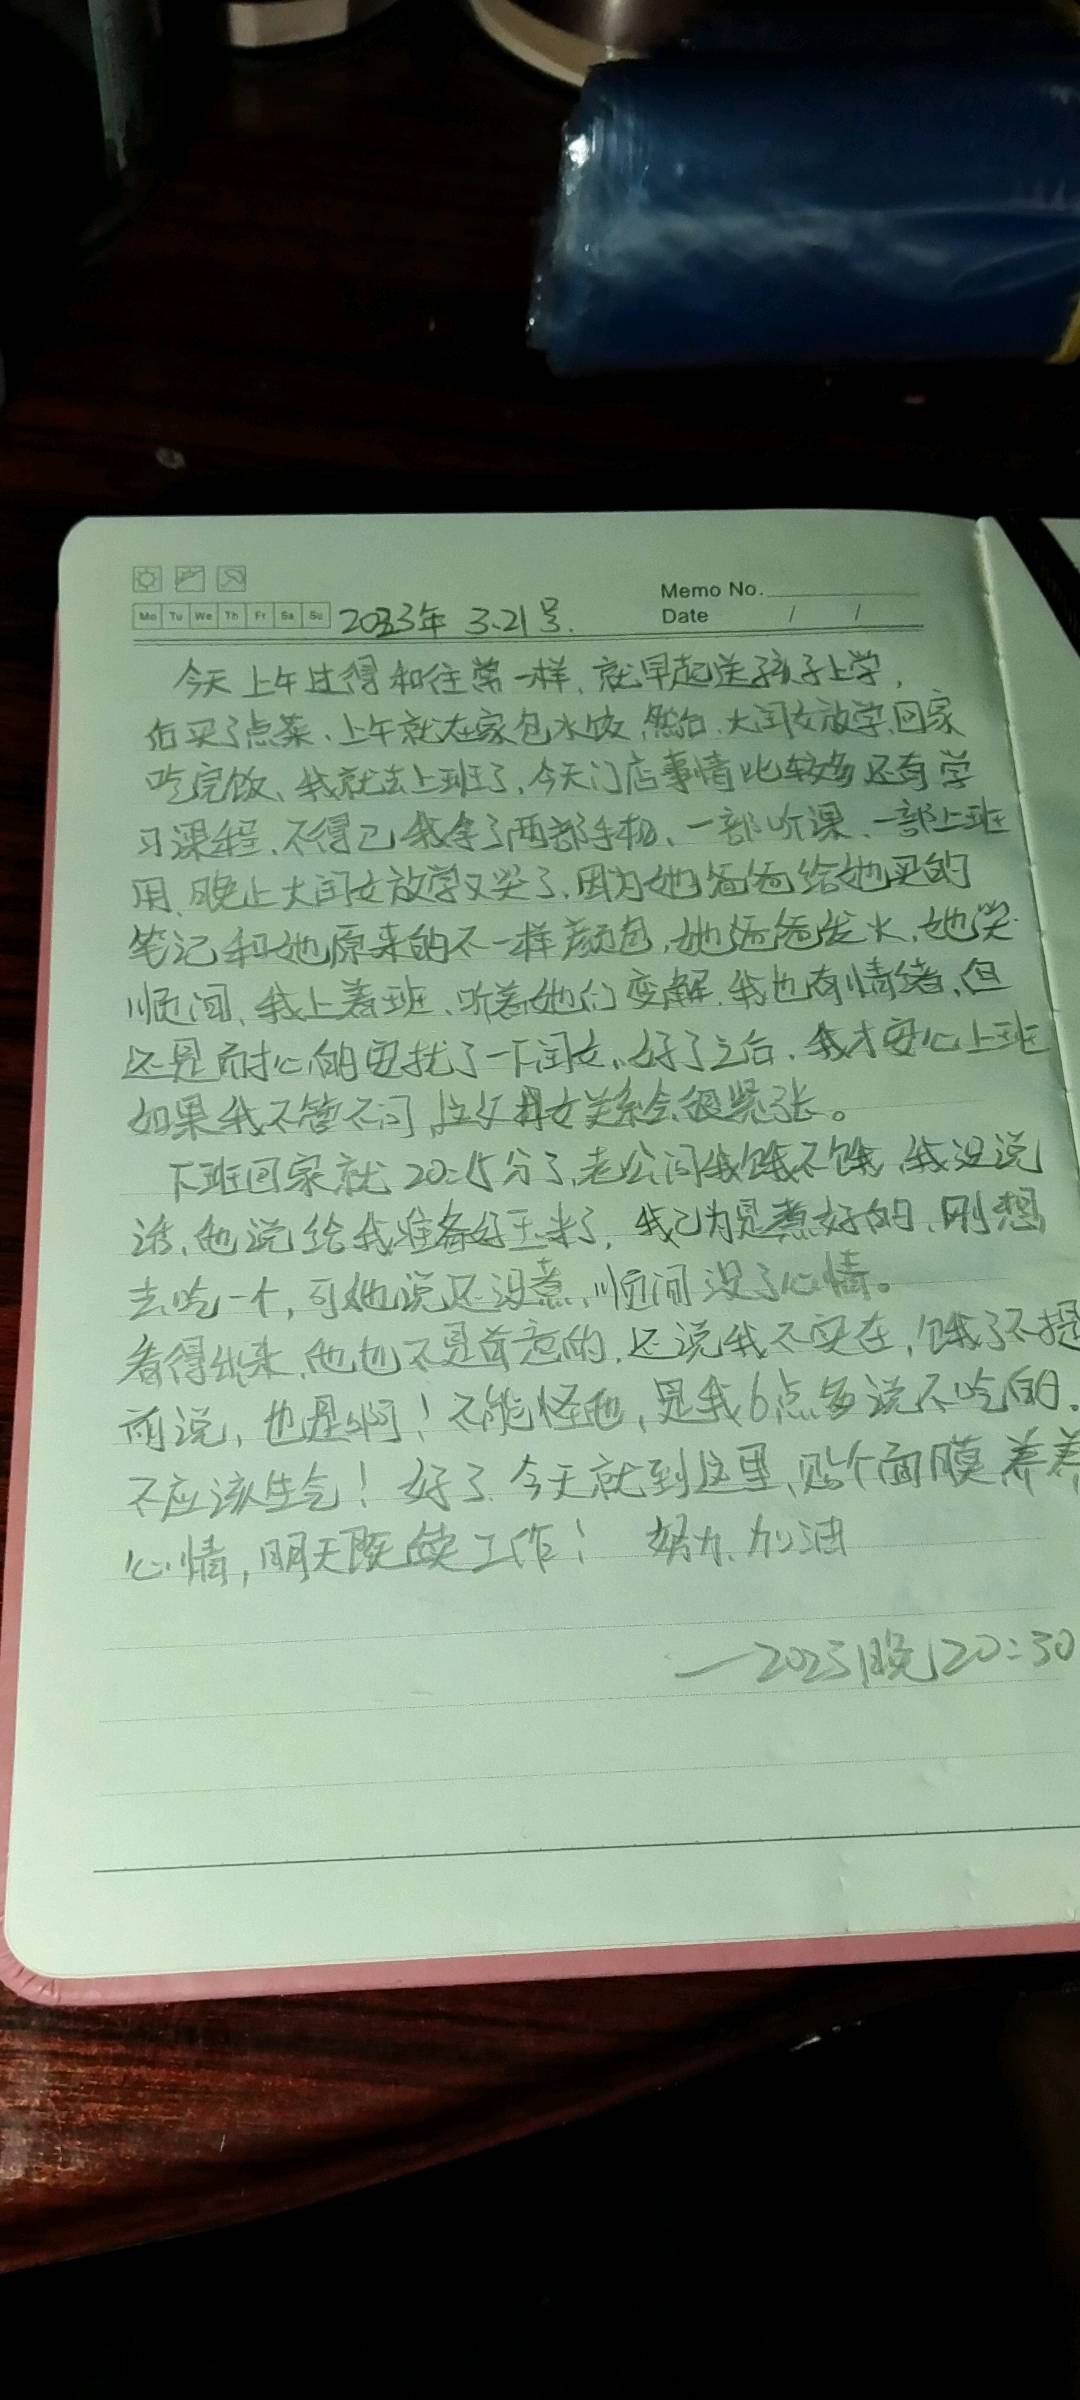 Memo No.
Mo Tu We Th Fr Sa Su 2023年 3.21号. Date / /
今天上午过得和往常一样、就早起送孩子上学,
后买了点菜、上午就在家包水饺,然后、大闺女放学回家
吃完饭、我就去上班了、今天门店事情比较多还有学
习课程、不得已我拿了两部手机、一部听课、一部上班
用、晚上大闺女放学又哭了、因为她爸爸给她买的
笔记和她原来的不一样颜色,她爸爸发火,她哭
顺间、我上着班、听着她们变解、我也有情绪、但
还是耐心的安抚了一下闺女、好了之后、我才安心上班
如果我不管不问,这父女关系会很紧张。
下班回家就20:15分了,老公问我饿不饿,我没说
话、他说给我准备好玉米了,我已为是煮好的、刚想
去吃一个,可她说还没煮、顺间没了心情。
看得出来、他也不是故意的、还说我不实在,饿了不提
前说,也是啊!不能怪他,是我6点多说不吃的、
不应该生气!好了、今天就到这里,贴个面膜养养
心情,明天继续工作! 努力、加油
—2023晚20:30